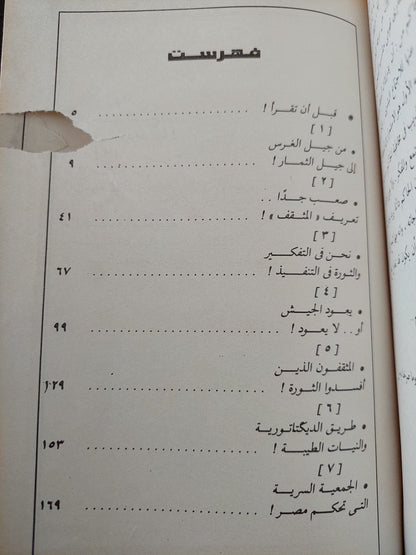 فهرست
• قبل أن تقرأ ! . . . . . . . . . . . . . . . . . . ٥
[ ١ ]
• من جيل الغرس
إلى جيل الثمار ! . . . . . . . . . . . . . . . . . ٩
[ ٢ ]
• صعب جدًا . .
تعريف « المثقف » ! . . . . . . . . . . . . . . ٤١
[ ٣ ]
• نحن فى التفكير
والثورة فى التنفيذ ! . . . . . . . . . . . . . . ٦٧
[ ٤ ]
• يعود الجيش
أو . . لا يعود ! . . . . . . . . . . . . . . . . . ٩٩
[ ٥ ]
• المثقفون الذين
أفسدوا الثورة ! . . . . . . . . . . . . . . . . ١٢٩
[ ٦ ]
• طريق الديكتاتورية
والنيات الطيبة ! . . . . . . . . . . . . . . . ١٥٣
[ ٧ ]
• الجمعية السرية
التى تحكم مصر ! . . . . . . . . . . . . . . ١٦٩